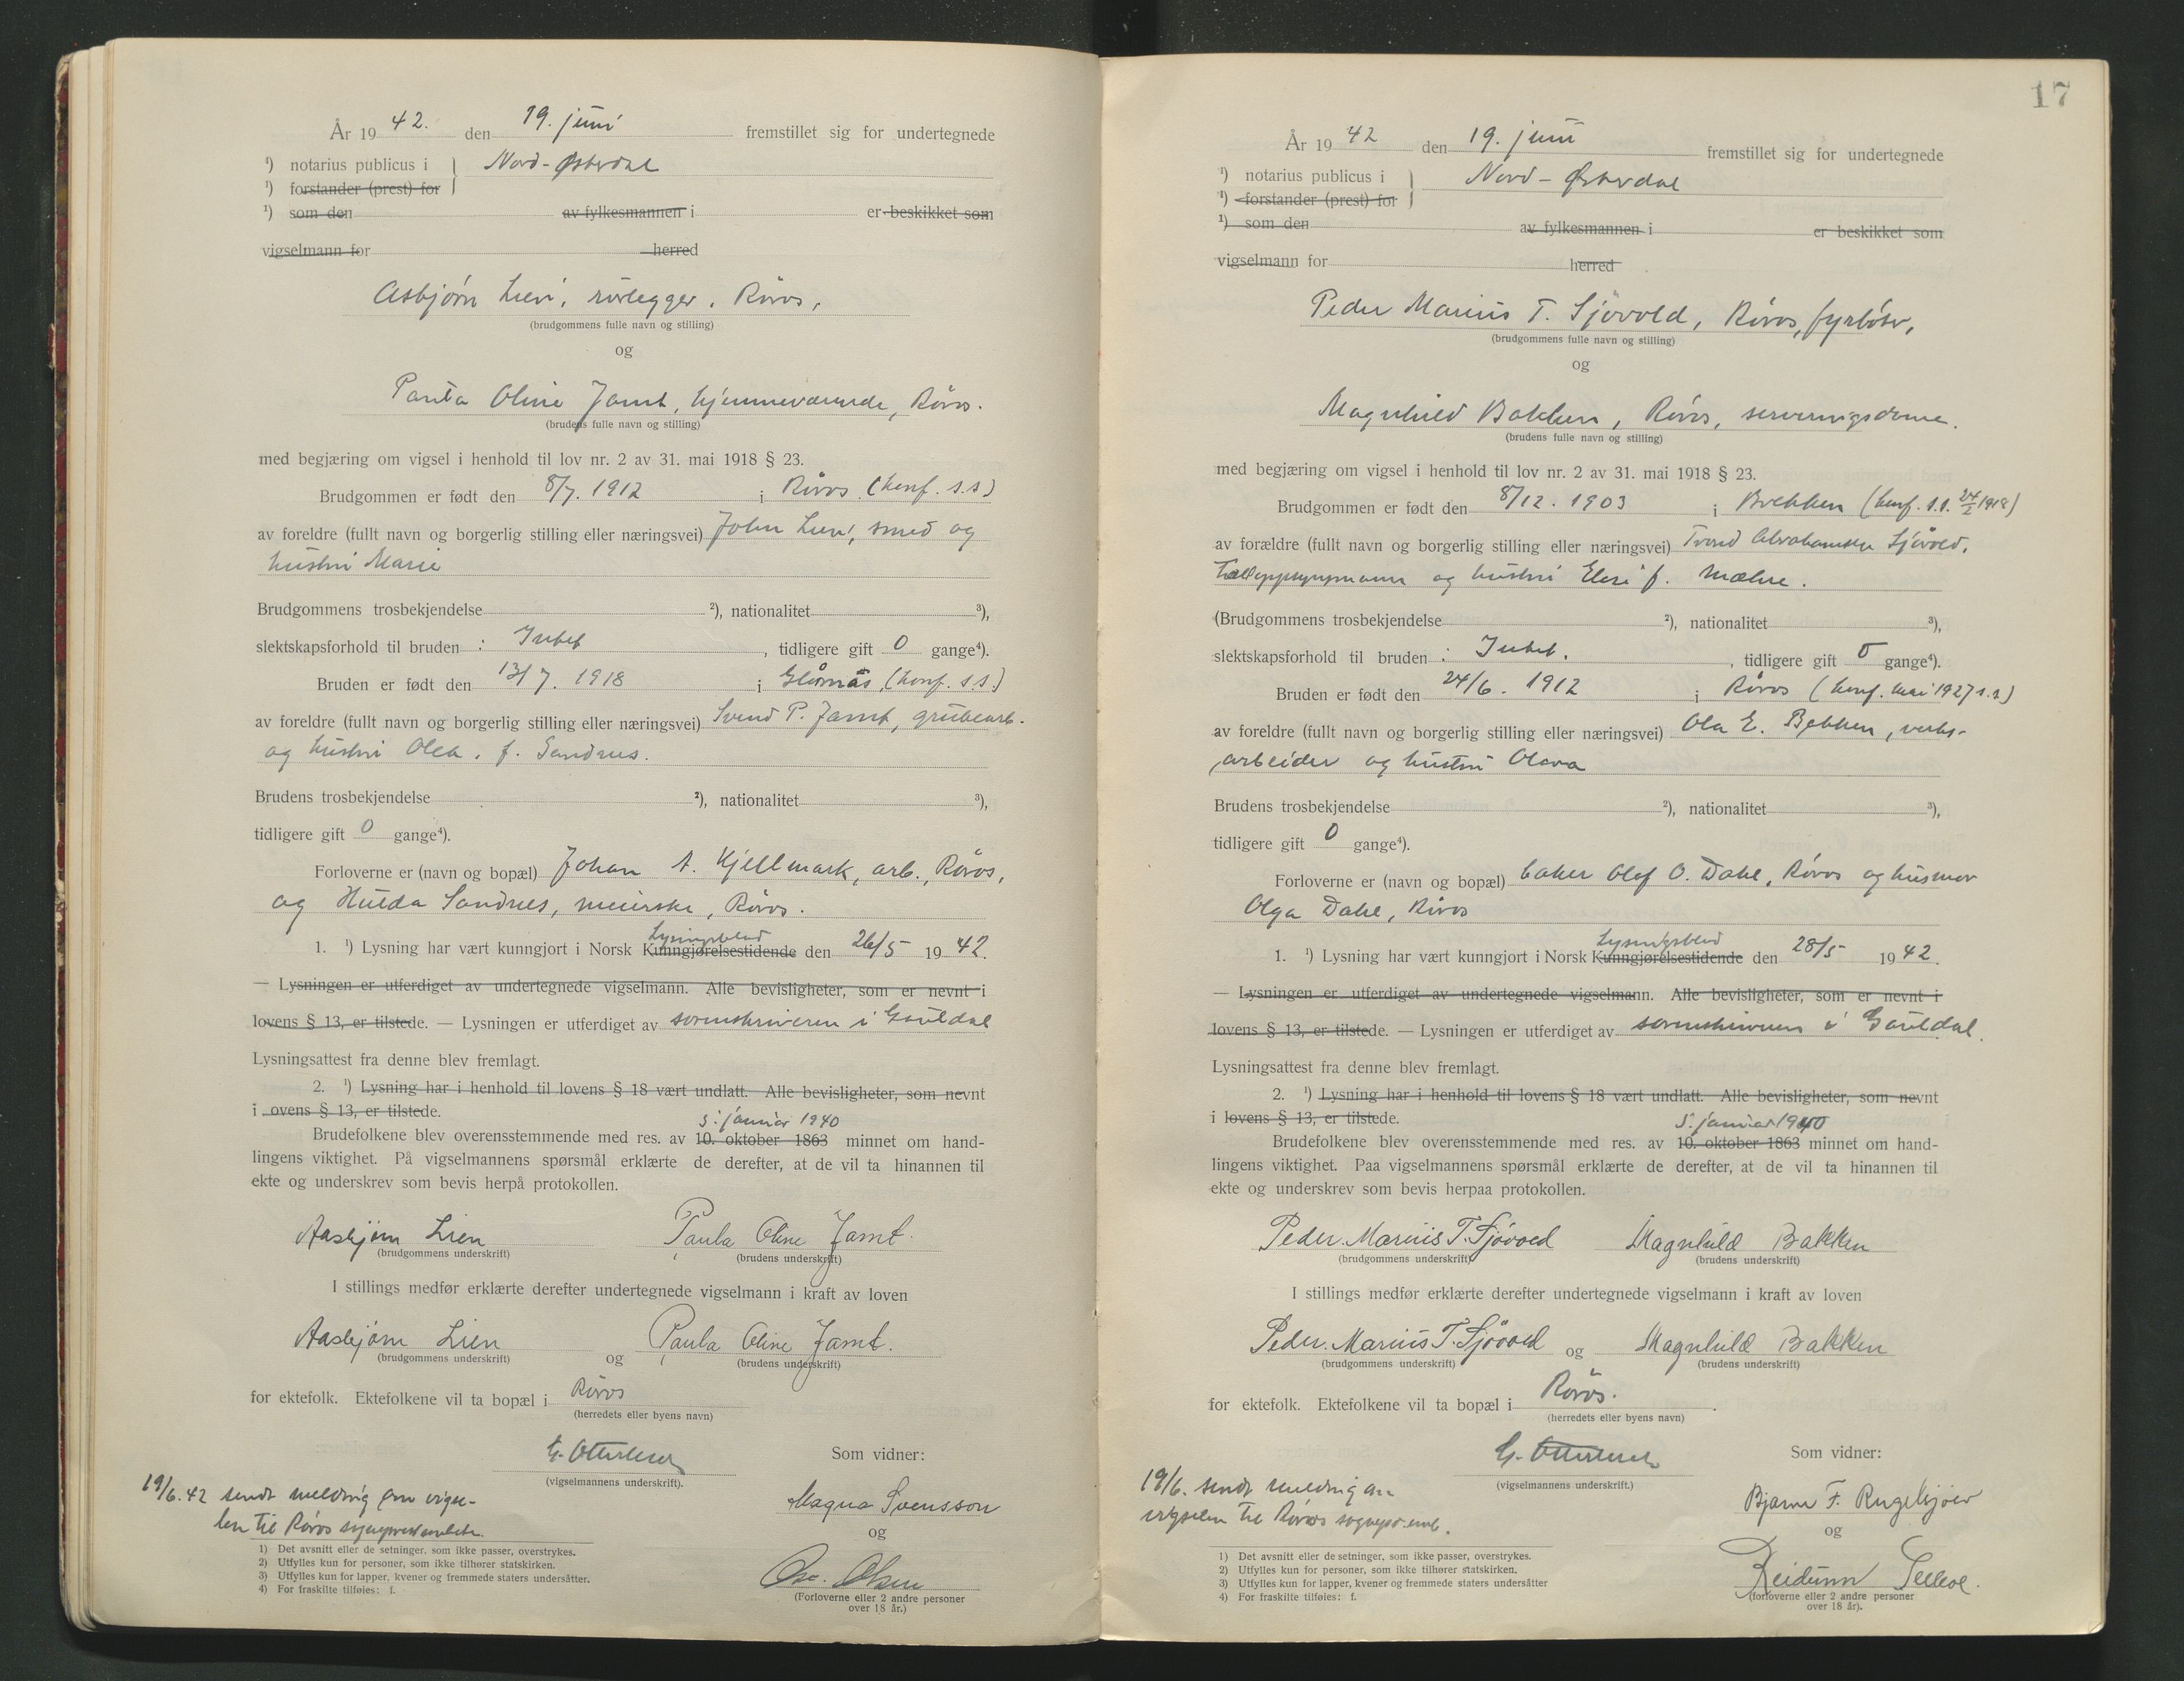 År 19 42. den 19. juni fremstillet sig for undertegnede
¹) notarius publicus i } Nord-Østerdal
¹) forstander (prest) for
¹) som den av fylkesmannen i er beskikket som
vigselmann for herred
Asbjørn Lien, rørlegger, Røros,
(brudgommens fulle navn og stilling)
og
Paula Oline Jamt, hjemmeværende, Røros.
(brudens fulle navn og stilling)
med begjæring om vigsel i henhold til lov nr. 2 av 31. mai 1918 § 23.
Brudgommen er født den 8/7. 1912 i Røros (konf. s.s)
av foreldre (fullt navn og borgerlig stilling eller næringsvei) John Lien, smed og
hustru Marie
Brudgommens trosbekjendelse ²), nationalitet ³),
slektskapsforhold til bruden : Intet , tidligere gift 0 gange⁴).
Bruden er født den 13/7. 1918 i Glåmos, (konf. s.s.)
av foreldre (fullt navn og borgerlig stilling eller næringsvei) Svend P. Jamt, grubearb.
og hustru Olea, f. Sandnes.
Brudens trosbekjendelse ²), nationalitet ³),
tidligere gift 0 gange⁴).
Forloverne er (navn og bopæl) Johan A. Kjellmark, arb., Røros,
og Hulda Sandnes, meierske, Røros.
Lysingsblad
1. ¹) Lysning har vært kunngjort i Norsk Kunngjørelsestidende den 26/5 19 42.
— Lysningen er utferdiget av undertegnede vigselmann. Alle bevisligheter, som er nevnt i
lovens § 13, er tilstede. — Lysningen er utferdiget av sorenskriveren i Gauldal
Lysningsattest fra denne blev fremlagt.
2. ¹) Lysning har i henhold til lovens § 18 vært undlatt. Alle bevisligheter, som nevnt
i ovens § 13, er tilstede.
5. januar 1940
Brudefolkene blev overensstemmende med res. av 10. oktober 1863 minnet om hand-
lingens viktighet. På vigselmannens spørsmål erklærte de derefter, at de vil ta hinannen til
ekte og underskrev som bevis herpå protokollen.
Aasbjørn Lien Paula Oline Jamt.
(brudgommens underskrift) (brudens underskrift)
I stillings medfør erklærte derefter undertegnede vigselmann i kraft av loven
Aasbjørn Lien og Paula Oline Jamt.
(brudgommens underskrift) (brudens underskrift)
for ektefolk. Ektefolkene vil ta bopæl i Røros
(herredets eller byens navn)
G. Ottersen Som vidner:
(vigselmannens underskrift).
19/6.42 sendt melding om vigse-
len til Røros sogneprestembete.
Magna Svensson
og
Osc. Olsen
(Forloverne eller 2 andre personer
over 18 år.)
1) Det avsnitt eller de setninger, som ikke passer, overstrykes.
2) Utfylles kun for personer, som ikke tilhører statskirken.
3) Utfylles kun for lapper, kvener og fremmede staters undersåtter.
4) For fraskilte tilføies: f.
17
År 19 42 den 19. juni fremstillet sig for undertegnede
¹) notarius publicus i } Nord-Østerdal
¹) forstander (prest) for
¹) som den av fylkesmannen i er beskikket som
vigselmann for herred
Peder Marius T. Sjøvold, Røros, fyrbøter,
(brudgommens fulle navn og stilling)
og
Magnhild Bakken, Røros, serveringsdame.
(brudens fulle navn og stilling)
med begjæring om vigsel i henhold til lov nr. 2 av 31. mai 1918 § 23.
Brudgommen er født den 8/12. 1903 i Brekken (konf. s.s. 24/2 1918)
av forældre (fullt navn og borgerlig stilling eller næringsvei) Trond Abrahamsen Sjøvold,
og hustru Elen f. Mælne.
(Brudgommens trosbekjendelse ²), nationalitet ³),
slektskapsforhold til bruden : Intet. , tidligere gift 0 gange⁴).
Bruden er født den 24/6. 1912 i Røros (konf. mai 1927 s.s)
av foreldre (fullt navn og borgerlig stilling eller næringsvei) Ola E. Bakken, verks-
arbeider og hustru Olava
Brudens trosbekjendelse ²), nationalitet ³),
tidligere gift 0 gange⁴).
Forloverne er (navn og bopæl) baker Olaf O. Dahl, Røros og husmor
Olga Dahl, Røros
Lysingsblad
1. ¹) Lysning har vært kunngjort i Norsk Kunngjørelsestidende den 28/5 19 42.
— Lysningen er utferdiget av undertegnede vigselmann. Alle bevisligheter, som er nevnt i
lovens § 13, er tilstede. — Lysningen er utferdiget av sorenskriveren i Gauldal.
Lysningsattest fra denne blev fremlagt.
2. ¹) Lysning har i henhold til lovens § 18 vært undlatt. Alle bevisligheter, som nevnt
i lovens § 13, er tilstede.
5. januar 1940
Brudefolkene blev overensstemmende med res. av 10. oktober 1863 minnet om hand-
lingens viktighet. Paa vigselmannens spørsmål erklærte de derefter, at de vil ta hinannen til
ekte og underskrev som bevis herpaa protokollen.
Peder Marius T. Sjøvold Magnhild Bakken
(brudgommens underskrift) (brudens underskrift)
I stillings medfør erklærte derefter undertegnede vigselmann i kraft av loven
Peder Marius T. Sjøvold og Magnhild Bakken
(brudgommens underskrift) (brudens underskrift)
for ektefolk. Ektefolkene vil ta bopæl i Røros.
(herredets eller byens navn)
G. Ottersen Som vidner:
(vigselmannens underskrift.)
19/6. sendt melding om
vigselen til Røros sognepr.emb.
Bjarne F.
og
Reidunn
(forloverne eller 2 andre personer
over 18 år).
1) Det avsnitt eller de setninger, som ikke passer, overstrykes.
2) Utfylles kun for personer, som ikke tilhører statskirken.
3) Utfylles kun for lapper, kvener og fremmede staters undersåtter
4) For fraskilte tilføies: f.